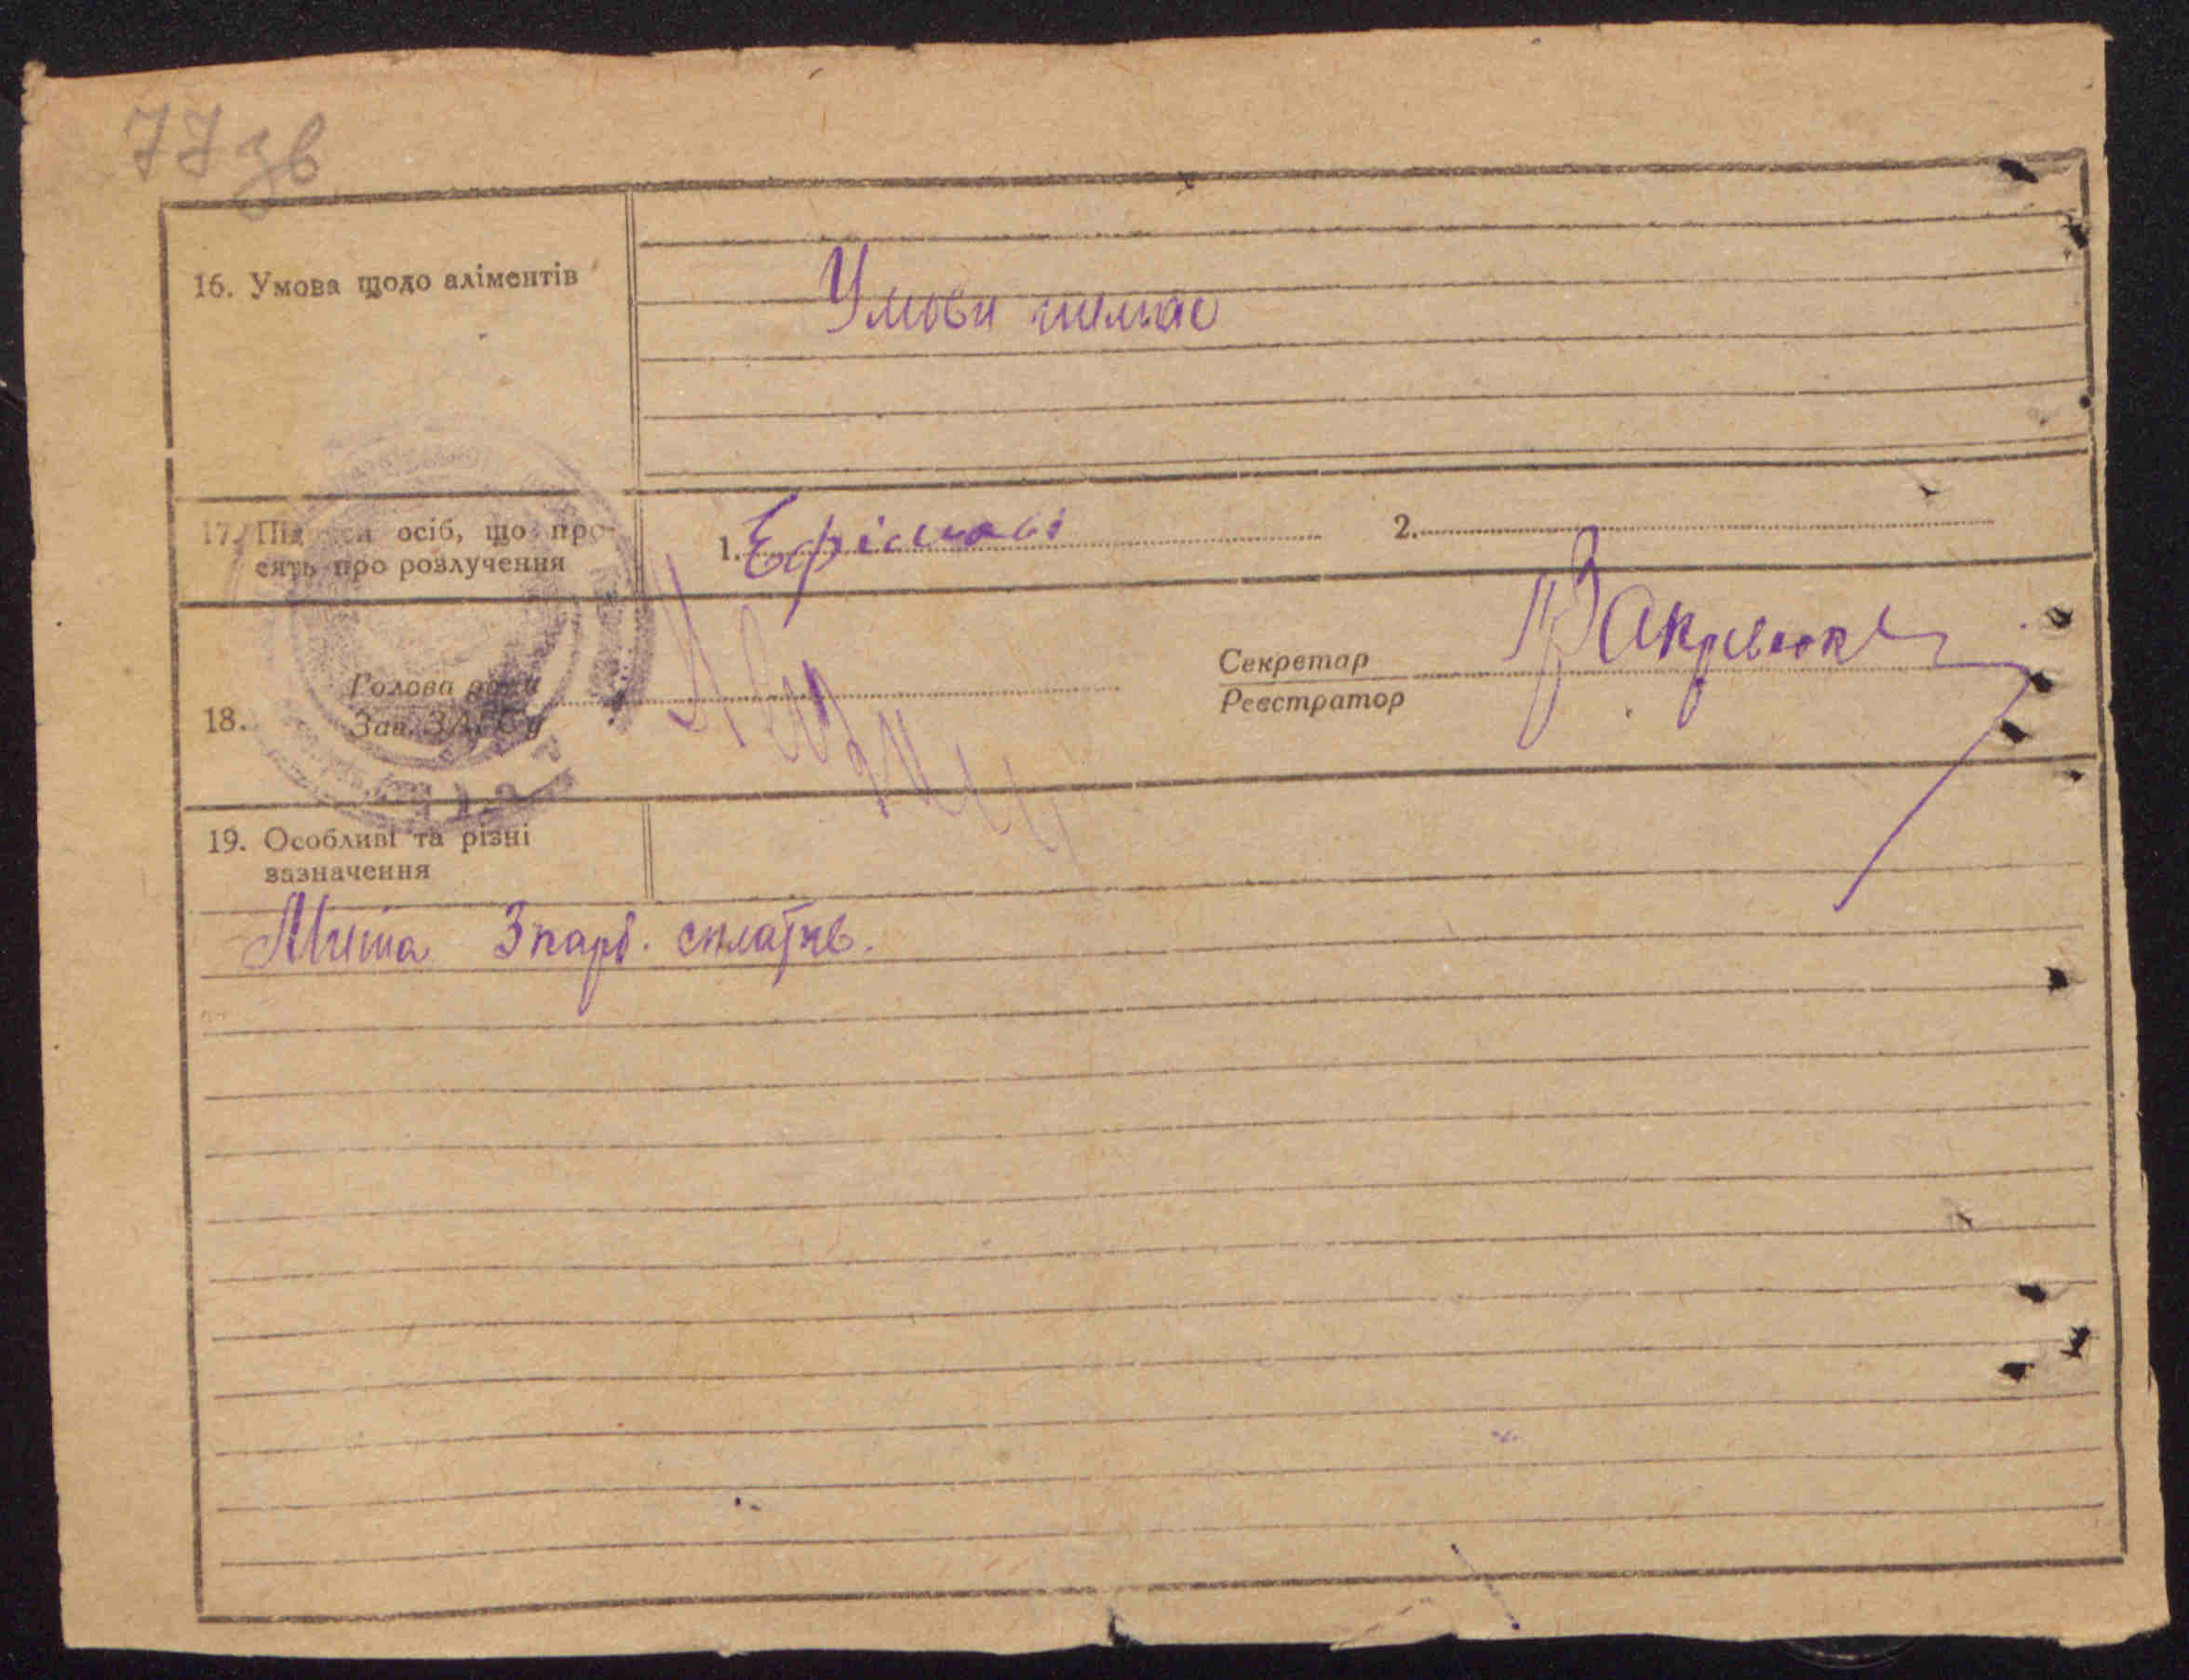 77 зв
16. Умова щодо аліментів
Умови немає
17. Підписи осіб, що про-
сять про розлучення
1. 2.
18.
Голова ради
Зав. ЗАГС'у
Секретар
Реєстратор
19. Особливі та різні
зазначення
Мита 3 карб. сплачв.